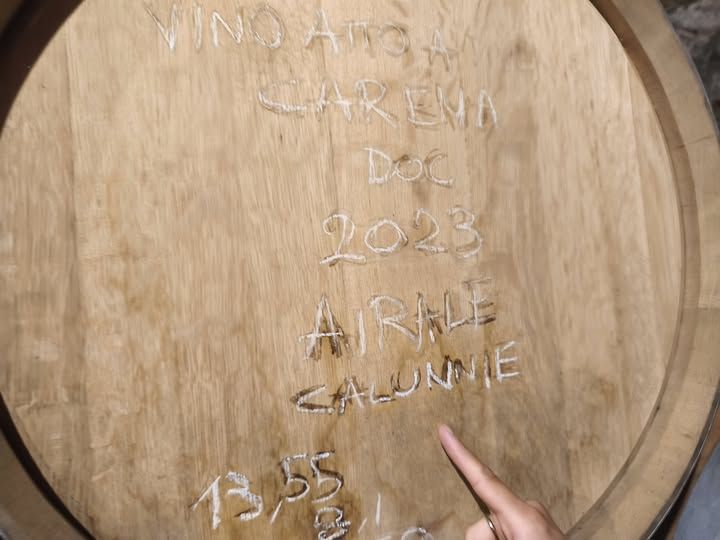 VINO ATTO A
CAREMA
DOC
2023
AIRALE
CALUNNIE
13,55